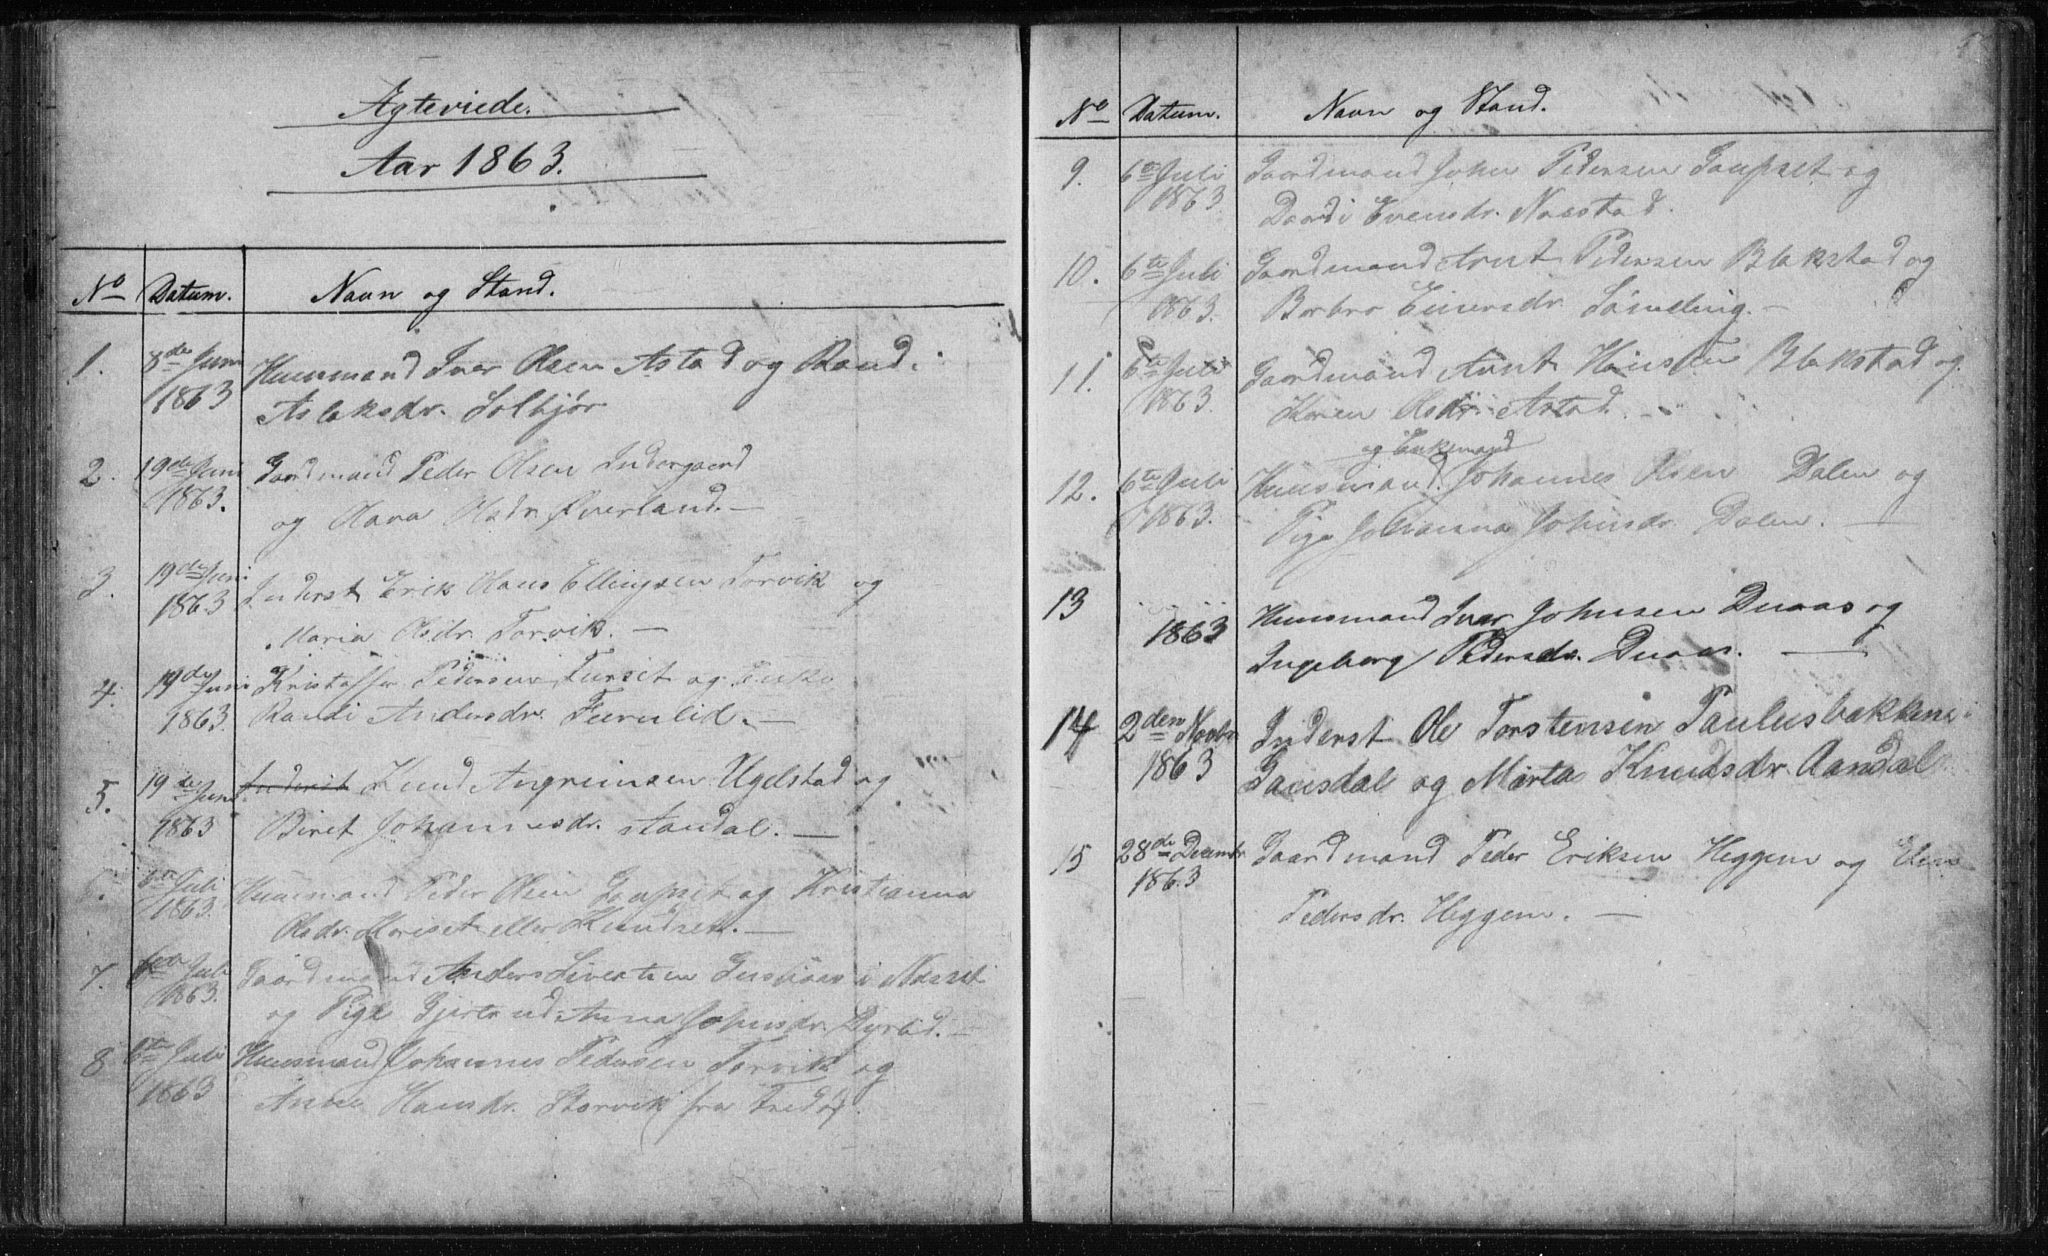 Ægteviede.
Aar 1863.
No Datum. Navn og Stand.
1. 8de Juni Huusmand Iver Olsen Astad og Rand i
1863 Aslaksdr. Solbjør
2. 19de Juni Gaardmand Peder Olsen Indergaard
1863. og Olava Olsdr. Øverland. —
3. 19de Juni Inderst Erik Olaus Ellingsen Torvik og
1863 Maria Olsdr. Torvik. —
4. 19de Juni Kristoffer Pedersen Furset og Enke
1863 Randi Andersdr. Furulid. —
5. 19de Juni Inderst Knud Angrimsen Ugelstad og
1863 Biret Johannesdr. Aandal. —
6. 6te Juli Huusmand Peder Olsen Gaupset og Kristianna
1863. Olsdr. Horset eller Knudset. —
7. 6te Juli Gaardmand Anders Sivertsen i Næsset
1863. og Pige Gjertrud Anna Johnsdr. Dyrlid. —
8 6te Juli Huusmand Johannes Pedersen Torvik og
1863 Anne Hansdr. Storvik fra Fredø.
No Datum. Navn og Stand.
9. 6te Juli Gaardmand John Pedersen Gaupset og
1863 Dordi Evensdr. Naastad.
10. 6te Juli Gaardmand Arnt Pedersen Blakstad og
1863. Borbro Einersdr. Sandling. —
11. 6te Juli Gaardmand Arnt Hansen Blakstad og
1863. Karen Olsdr. Astad. —
og Enkemand
12. 6te Juli Huusmand Johannes Olsen Dalen og
1863. Pige Johanna Johnsdr. Dalen. —
13 Huusmand Ivar Johnsen Duaas og
1863 Ingeborg Pedersdr. Duaas. —
14 2den Novbr Inderst Ole Torstensen Paulusbakken i
1863 Gausdal og Marta Knudsdr. Aandal
15 28de Decembr Gaardmand Peder Eriksen Heggem og Elen
1863 Pedersdr. Heggem. —